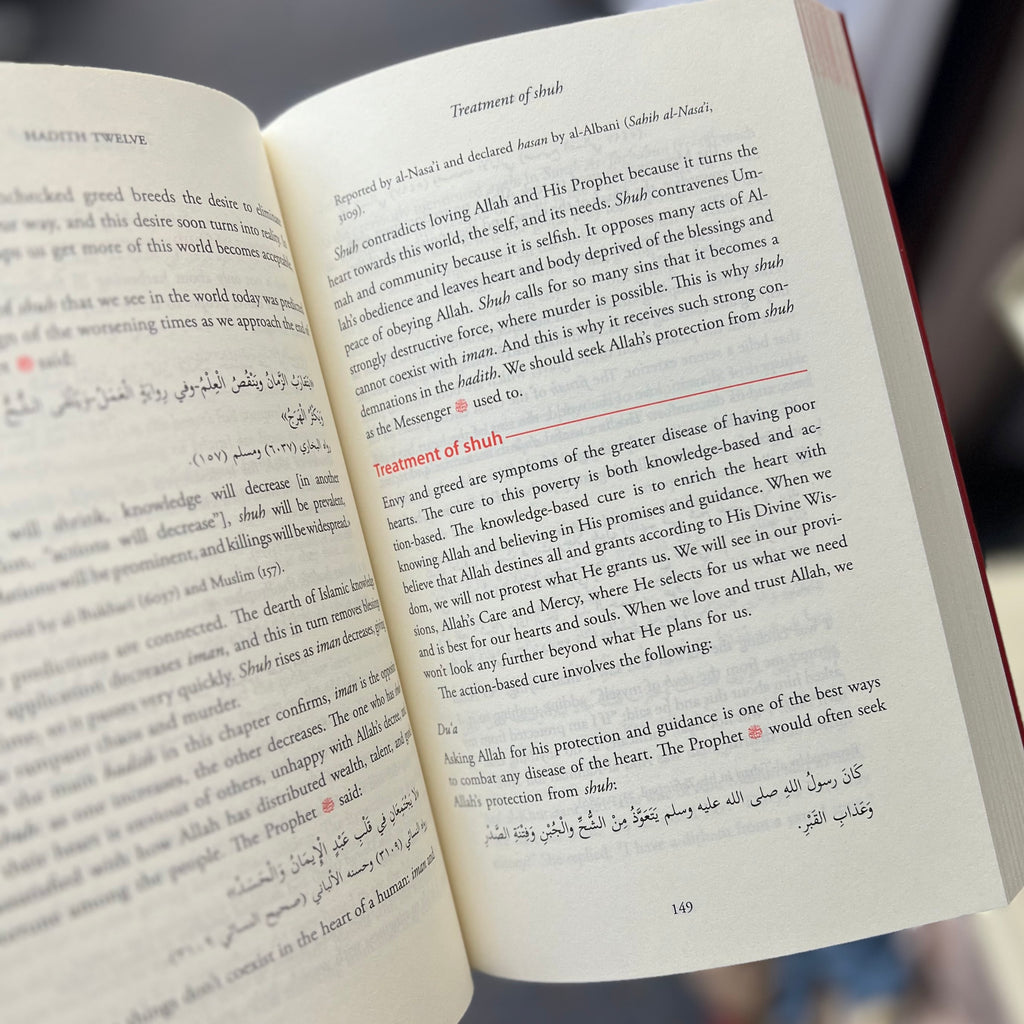 HADITH TWELVE
greed breeds the desire to
way, and this desire soon turns into
us get more of this world becomes
of shuh that we see in the world today was
of the worsening times as we approach the end
said:
الزَّمَانُ وَيَنْقُصُ الْعِلْمُ-وفي رِوايَةٍ العَمَلُ-وَيُلْقَى الشُّحُّ
وَيَكْثُرُ الْهَرْجُ»
رواه البخاري (٦٠٣٧) ومسلم (١٥٧).
will shrink, knowledge will decrease [in another
"actions will decrease"], shuh will be prevalent,
will be prominent, and killings will be widespread.
al-Bukhari (6037) and Muslim (157).
predictions are connected. The dearth of Islamic knowledge
application decreases iman, and this in turn removes
it passes very quickly. Shuh rises as iman decreases,
and murder.
hadith in this chapter confirms, iman is the
increases, the other decreases. The one who has
is envious of others, unhappy with Allah's decree,
with how Allah has distributed wealth, talent, and
among the people. The Prophet ﷺ said:
يَجْتَمِعَانِ فِي قَلْبِ عَبْدٍ الْإِيمَانُ وَالْحَسَدُ»
(٣١٠٩) وحسنه الألباني (صحيح النسائي ٣١٠٩).
things don't coexist in the heart of a human: iman and
Treatment of shuh
Reported by al-Nasa'i and declared hasan by al-Albani (Sahih al-Nasa'i,
3109).
Shuh contradicts loving Allah and His Prophet because it turns the
heart towards this world, the self, and its needs. Shuh contravenes Um-
mah and community because it is selfish. It opposes many acts of Al-
lah's obedience and leaves heart and body deprived of the blessings and
peace of obeying Allah. Shuh calls for so many sins that it becomes a
strongly destructive force, where murder is possible. This is why shuh
cannot coexist with iman. And this is why it receives such strong con-
demnations in the hadith. We should seek Allah's protection from shuh
as the Messenger ﷺ used to.
Treatment of shuh
Envy and greed are symptoms of the greater disease of having poor
hearts. The cure to this poverty is both knowledge-based and ac-
tion-based. The knowledge-based cure is to enrich the heart with
knowing Allah and believing in His promises and guidance. When we
believe that Allah destines all and grants according to His Divine Wis-
dom, we will not protest what He grants us. We will see in our provi-
sions, Allah's Care and Mercy, where He selects for us what we need
and is best for our hearts and souls. When we love and trust Allah, we
won't look any further beyond what He plans for us.
The action-based cure involves the following:
Du'a
Asking Allah for his protection and guidance is one of the best ways
to combat any disease of the heart. The Prophet ﷺ would often seek
Allah's protection from shuh:
كَانَ رسولُ اللهِ صلى الله عليه وسلم يَتَعَوَّذُ مِنْ الشُّحِّ والْجُبْنِ وَفِتْنَةِ الصَّدْرِ
وَعَذَابِ القَبْرِ.
149